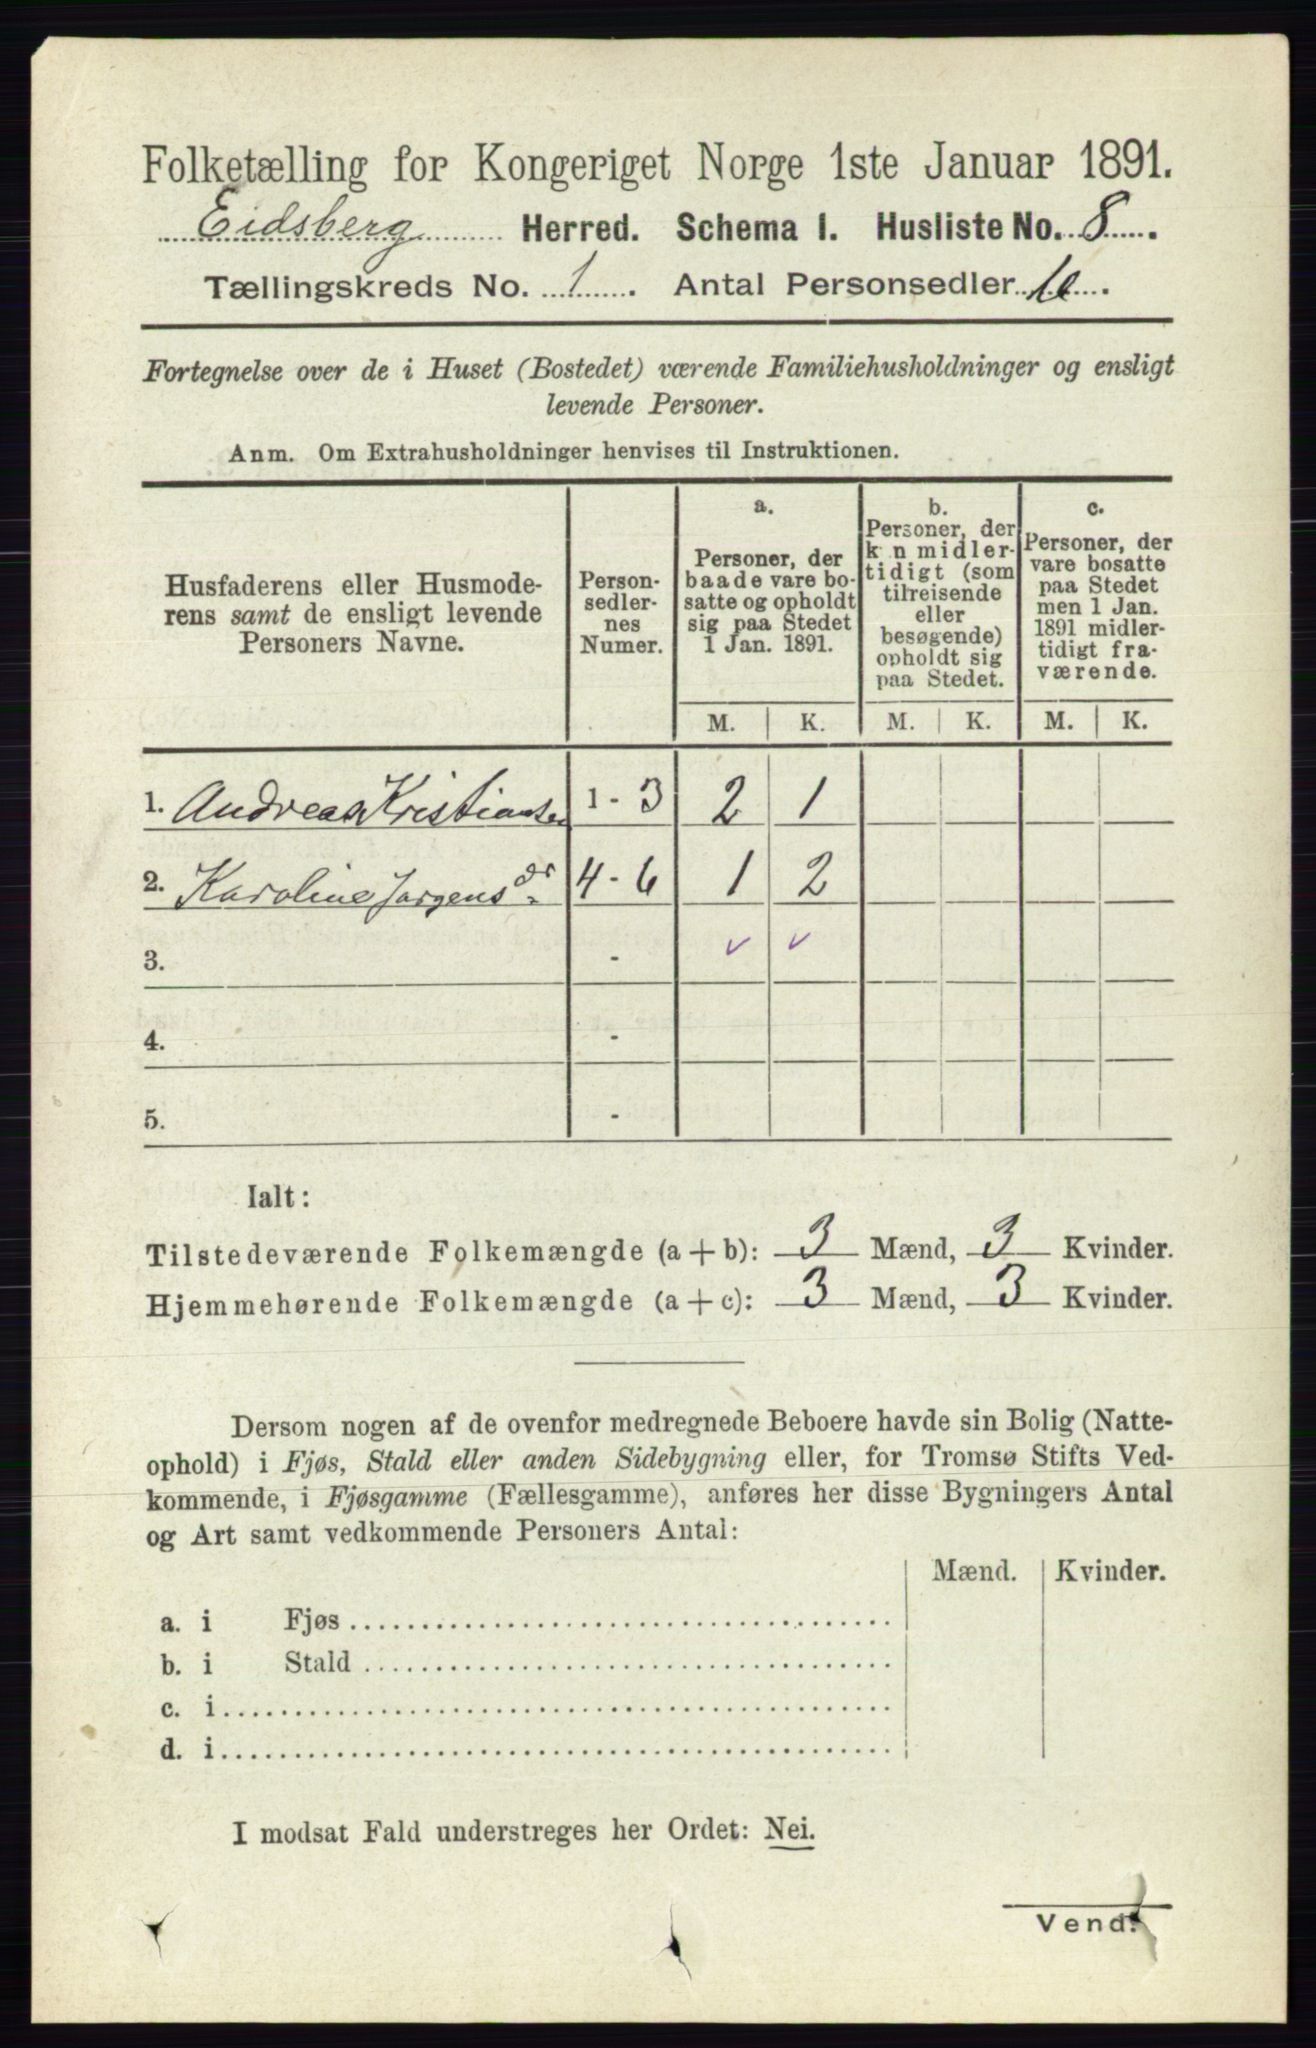 Folketælling for Kongeriget Norge 1ste Januar 1891.
Eidsberg Herred. Schema I. Husliste No. 8.
Tællingskreds No. 1. Antal Personsedler 6.
Fortegnelse over de i Huset (Bostedet) værende Familiehusholdninger og ensligt
levende Personer.
Anm. Om Extrahusholdninger henvises til Instruktionen.
Husfaderens eller Husmode-
rens samt de ensligt levende
Personers Navne.
Person-
sedler-
nes
Numer.
a.
Personer, der
baade vare bo-
satte og opholdt
sig paa Stedet
1 Jan. 1891.
b.
Personer, der
k n midler-
tidigt (som
tilreisende
eller
besøgende)
opholdt sig
paa Stedet.
c.
Personer, der
vare bosatte
paa Stedet
men 1 Jan.
1891 midler-
tidigt fra-
værende.
M. K. M. K. M. K.
1. Andreas Kristiansen 1 - 3 2 1
2. Karoline Jørgensdr 4 - 6 1 2
3. - ✓ ✓
4. -
5. -
Ialt:
Tilstedeværende Folkemængde (a + b): 3 Mænd, 3 Kvinder.
Hjemmehørende Folkemængde (a + c): 3 Mænd, 3 Kvinder.
Dersom nogen af de ovenfor medregnede Beboere havde sin Bolig (Natte-
ophold) i Fjøs, Stald eller anden Sidebygning eller, for Tromsø Stifts Ved-
kommende, i Fjøsgamme (Fællesgamme), anføres her disse Bygningers Antal
og Art samt vedkommende Personers Antal:
Mænd. Kvinder.
a. i Fjøs
b. i Stald
c. i
d. i
I modsat Fald understreges her Ordet: Nei.
Vend.